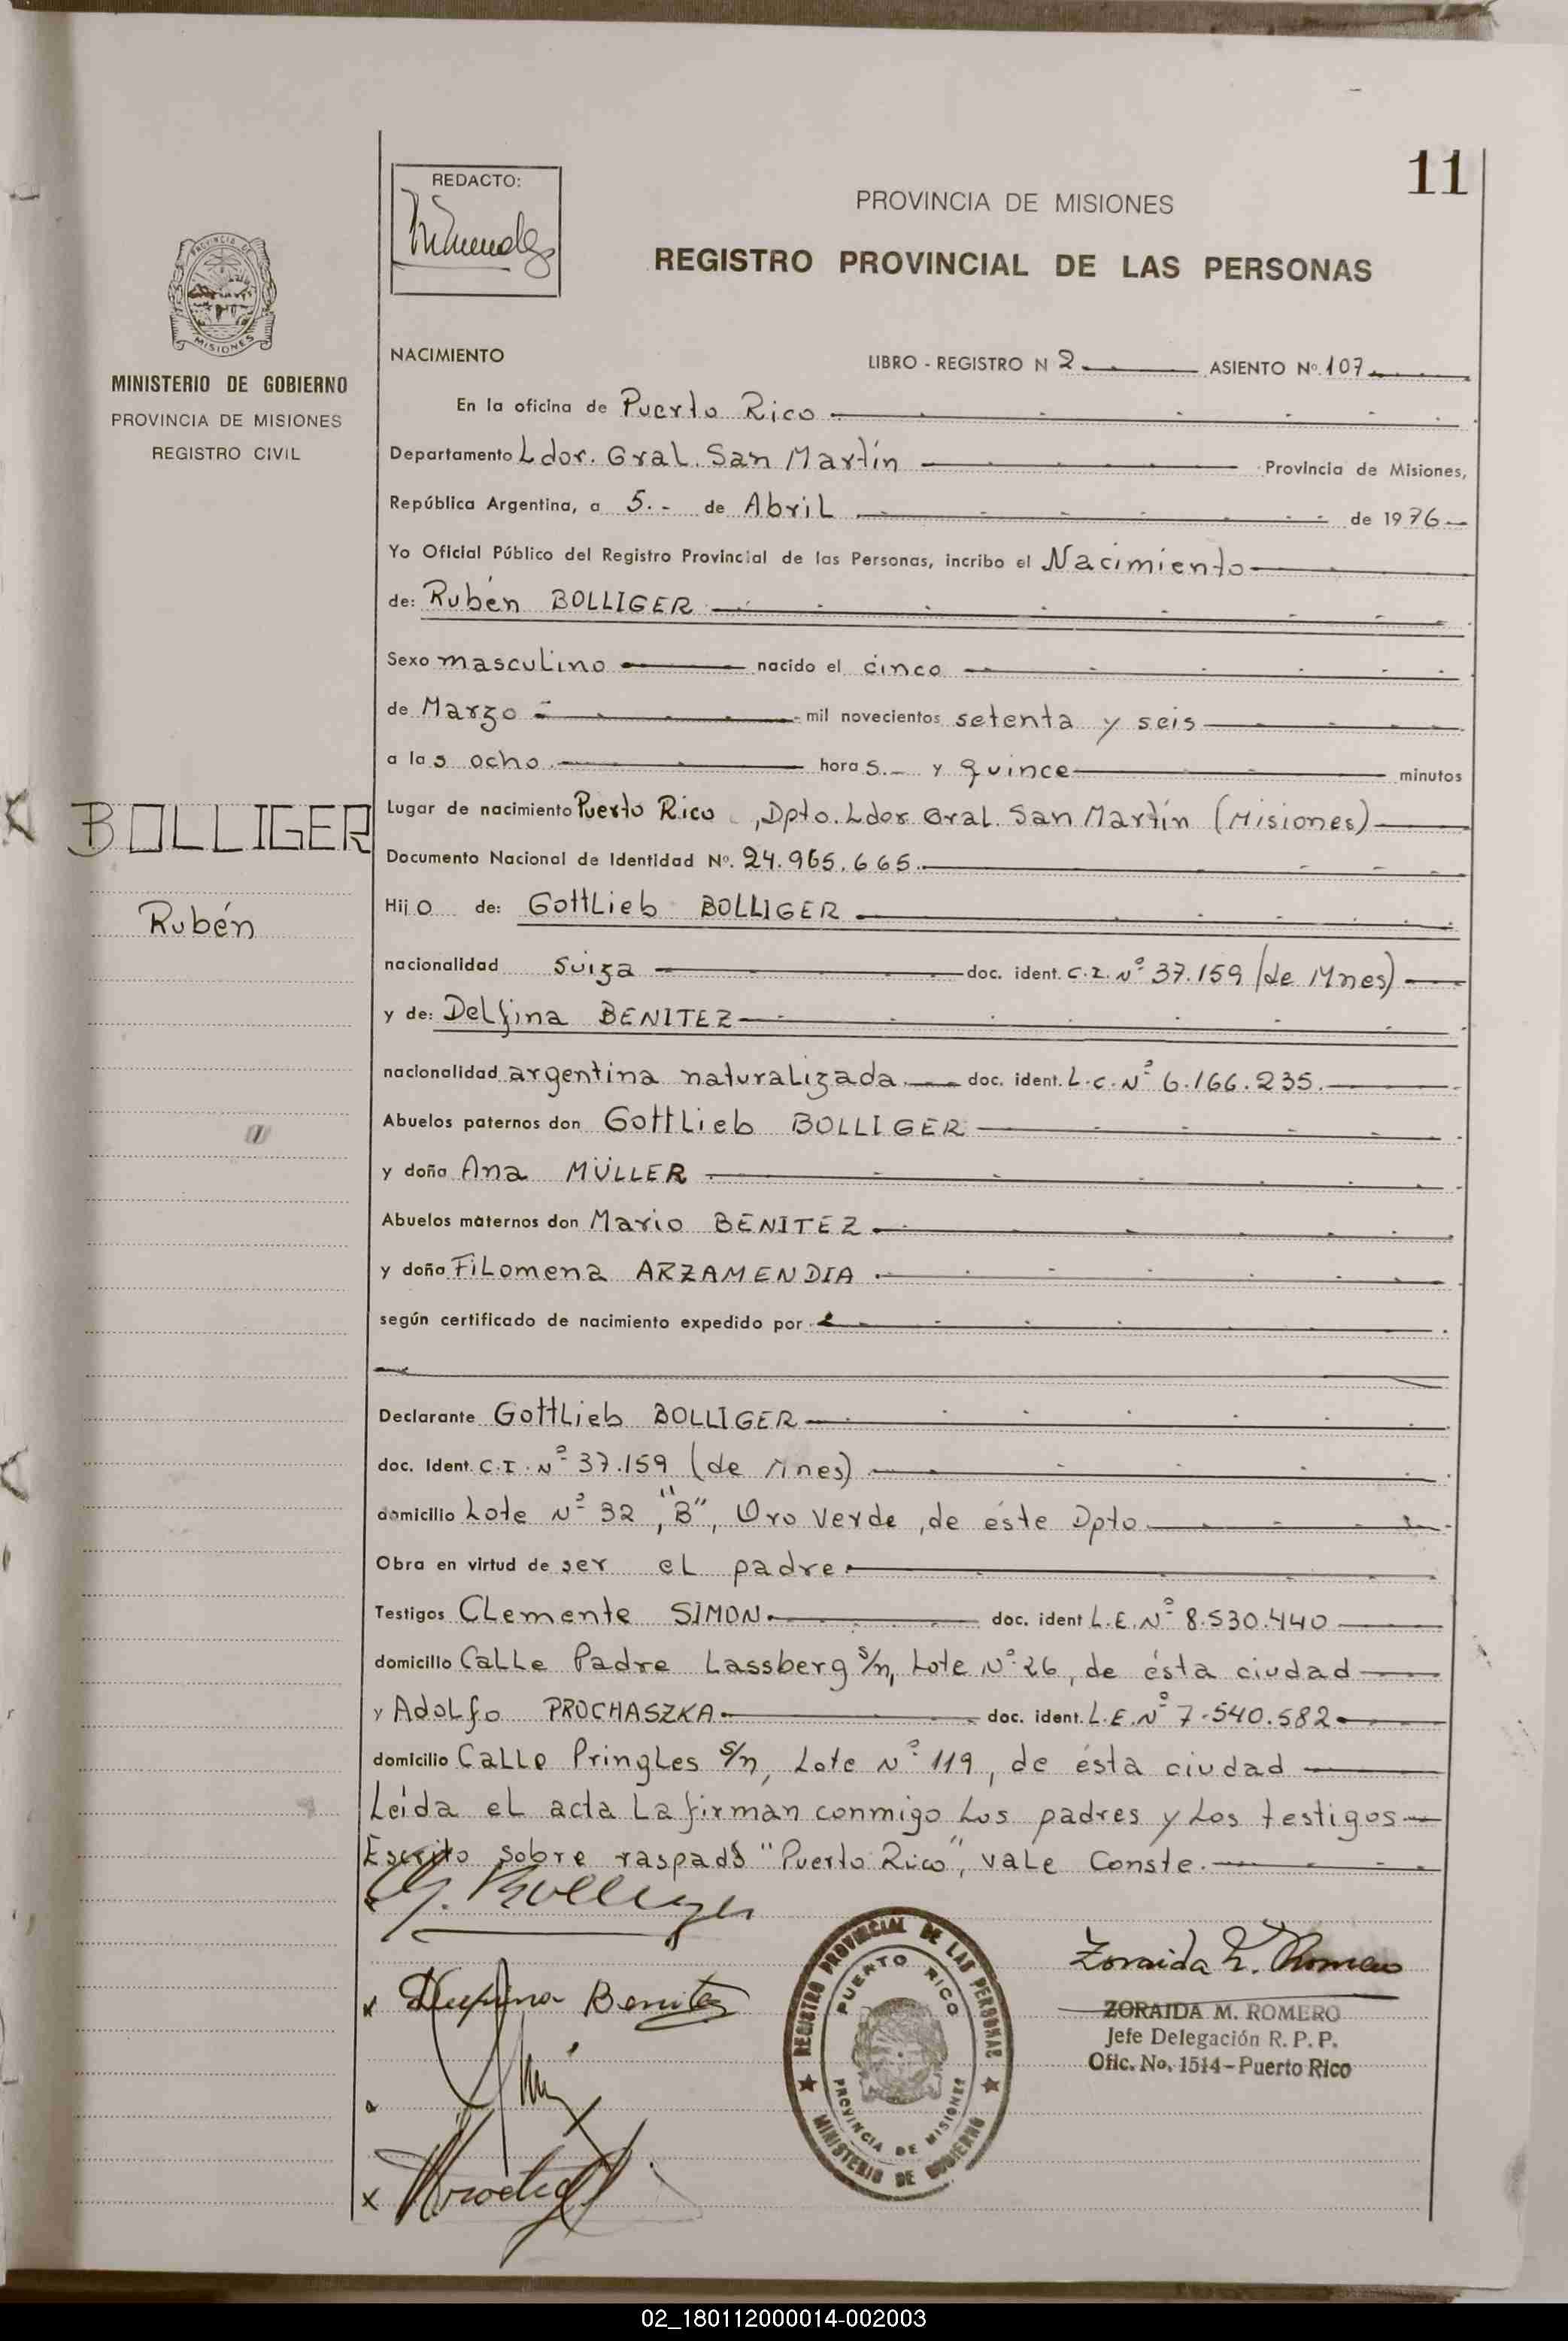 11
REDACTO:
PROVINCIA DE MISIONES
REGISTRO PROVINCIAL DE LAS PERSONAS
MISIONES
MINISTERIO DE GOBIERNO
PROVINCIA DE MISIONES
REGISTRO CIVIL
NACIMIENTO LIBRO - REGISTRO N 2 ASIENTO Nº. 107
En la oficina de Puerto Rico
Departamento Ldor. Gral. San Martín Provincia de Misiones,
República Argentina, a 5.- de Abril de 1976
Yo Oficial Público del Registro Provincial de las Personas, incribo el Nacimiento
de: Rubén BOLLIGER
Sexo masculino nacido el cinco
de Marzo mil novecientos setenta y seis
a las ocho horas y quince minutos
BOLLIGER
Rubén
Lugar de nacimiento Puerto Rico, Dpto. Ldor Gral. San Martín (Misiones)
Documento Nacional de Identidad Nº. 24.965.665
Hijo de: Gottlieb BOLLIGER
nacionalidad Suiza doc. ident. C.I. Nº 37.159 (de Mnes)
y de: Delfina BENITEZ
nacionalidad argentina naturalizada doc. ident. L.C. Nº 6.166.235.
Abuelos paternos don Gottlieb BOLLIGER
y doña Ana MÜLLER
Abuelos maternos don Mario BENITEZ
y doña Filomena ARZAMENDIA
según certificado de nacimiento expedido por
Declarante Gottlieb BOLLIGER
doc. Ident. C.I. Nº 37.159 (de Mnes)
domicilio Lote Nº 32, "B", Oro Verde, de éste Dpto.
Obra en virtud de ser el padre
Testigos Clemente SIMON doc. ident L.E. Nº 8.530.440
domicilio Calle Padre Lassberg s/n, Lote Nº 26, de ésta ciudad
y Adolfo PROCHASZKA doc. ident. L.E. Nº 7.540.582
domicilio Calle Pringles s/n, Lote Nº 119, de ésta ciudad
Leída el acta la firman conmigo los padres y los testigos
Escrito sobre raspado "Puerto Rico", vale Conste.
G. Bolliger
Delfina Benitez
REGISTRO PROVINCIAL DE LAS PERSONAS
PUERTO RICO
PROVINCIA DE MISIONES
MINISTERIO DE GOBIERNO
Zoraida M. Romero
ZORAIDA M. ROMERO
Jefe Delegación R. P. P.
Ofic. No. 1514 - Puerto Rico
02_180112000014-002003